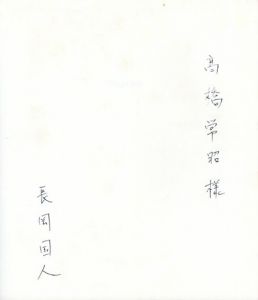 高橋常昭様
長岡国人